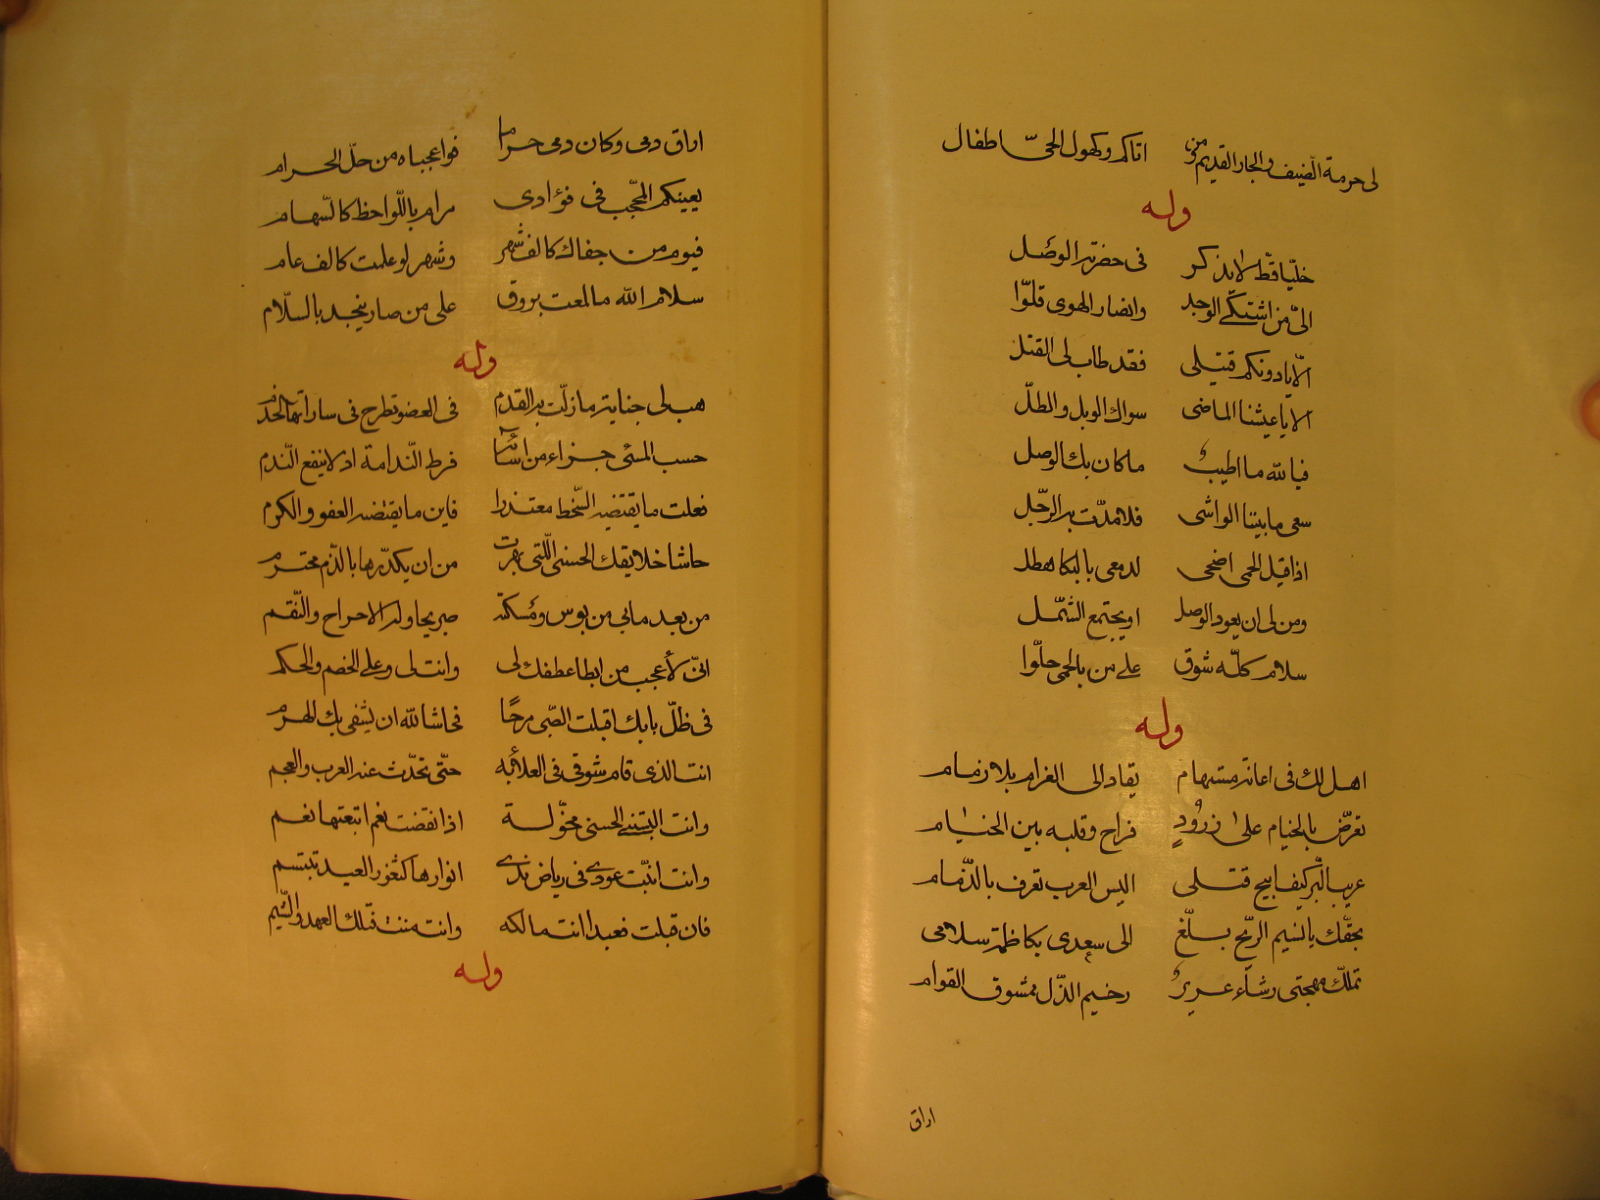 لى حرمة الضيف والجار القديم ومن اتاكم وكهول الحىّ اطفال
وله
خليّا قطّ لا يذكر فى حضرته الوصل
الىّ من اشتكى الوجد وانصار الهوى قلّوا
الا يا دونكم قتلى فقد طاب لى القتل
الا يا عيشنا الماضى سواك الوبل والطلّ
فيا لله ما اطيب ما كان بك الوصل
سعى ما بيننا الواشى فلا مدّت به الرجل
اذا قيل الحمى اضحى لدمعى بالبكا هطل
ومن لى ان يعود الوصل او يجتمع الشمل
سلام كلّه شوق على من بالحمى حلّوا
وله
اهل لك فى اعانة مستهام يقاد الى الغرام بلا زمام
تعرّض بالخيام على زرود فراح وقلبه بين الخيام
عريب البرّ كيف ابيح قتلى اليس العرب تعرف بالذّمام
بحقّك يا نسيم الريح بلّغ الى سعدى بكاظمة سلامى
تملّك مهجتى رشاء غرير رخيم الدّل ممشوق القوام
اراق
اراق دمى وكان دمى حراما فوا عجباه من حلّ الحرام
بعينكم المحجّب فى فؤادى مرام باللّواحظ كالسّهام
فيوم من جفاك كالف شهر وشهر لو علمت كالف عام
سلام الله ما لمعت بروق على من صار ينجد بالسلّام
وله
هب لى جناية ما زلّت به القدم فى العفو تطرح فى ساراتها الخدم
حسب المسئى جزاء من اسائته فرط النّدامة اذ لا ينفع النّدم
فعلت ما يقتضيه السّخط معتذرا فاين ما يقتضيه العفو والكرم
حاشا خلايقك الحسنى الّتى بهرت من ان يكدّرها بالذّم محترم
من بعد مابى من بوس ومسكنة صبر يحاوله الاحراح والنّقم
انّى لأعجب من ابطا عطفك لى وانت لى وعلى الخصم والحكم
فى ظلّ بابك اقبلت الصّبى مرحًا فحاشا لله ان يشفى بك الهرم
انت الذى قام شوقى فى العلا به حتّى تحدّث عنه العرب والعجم
وانت البستنى الحسنى مخوّلة اذا نقضت نعم اتبعتها نعم
وانت انبّت عودى فى رياض ندى انوارها كثغور العيد تبتسم
فان قبلت فعبد انت مالكه وانت مننت فتلك العهد والشّيم
وله